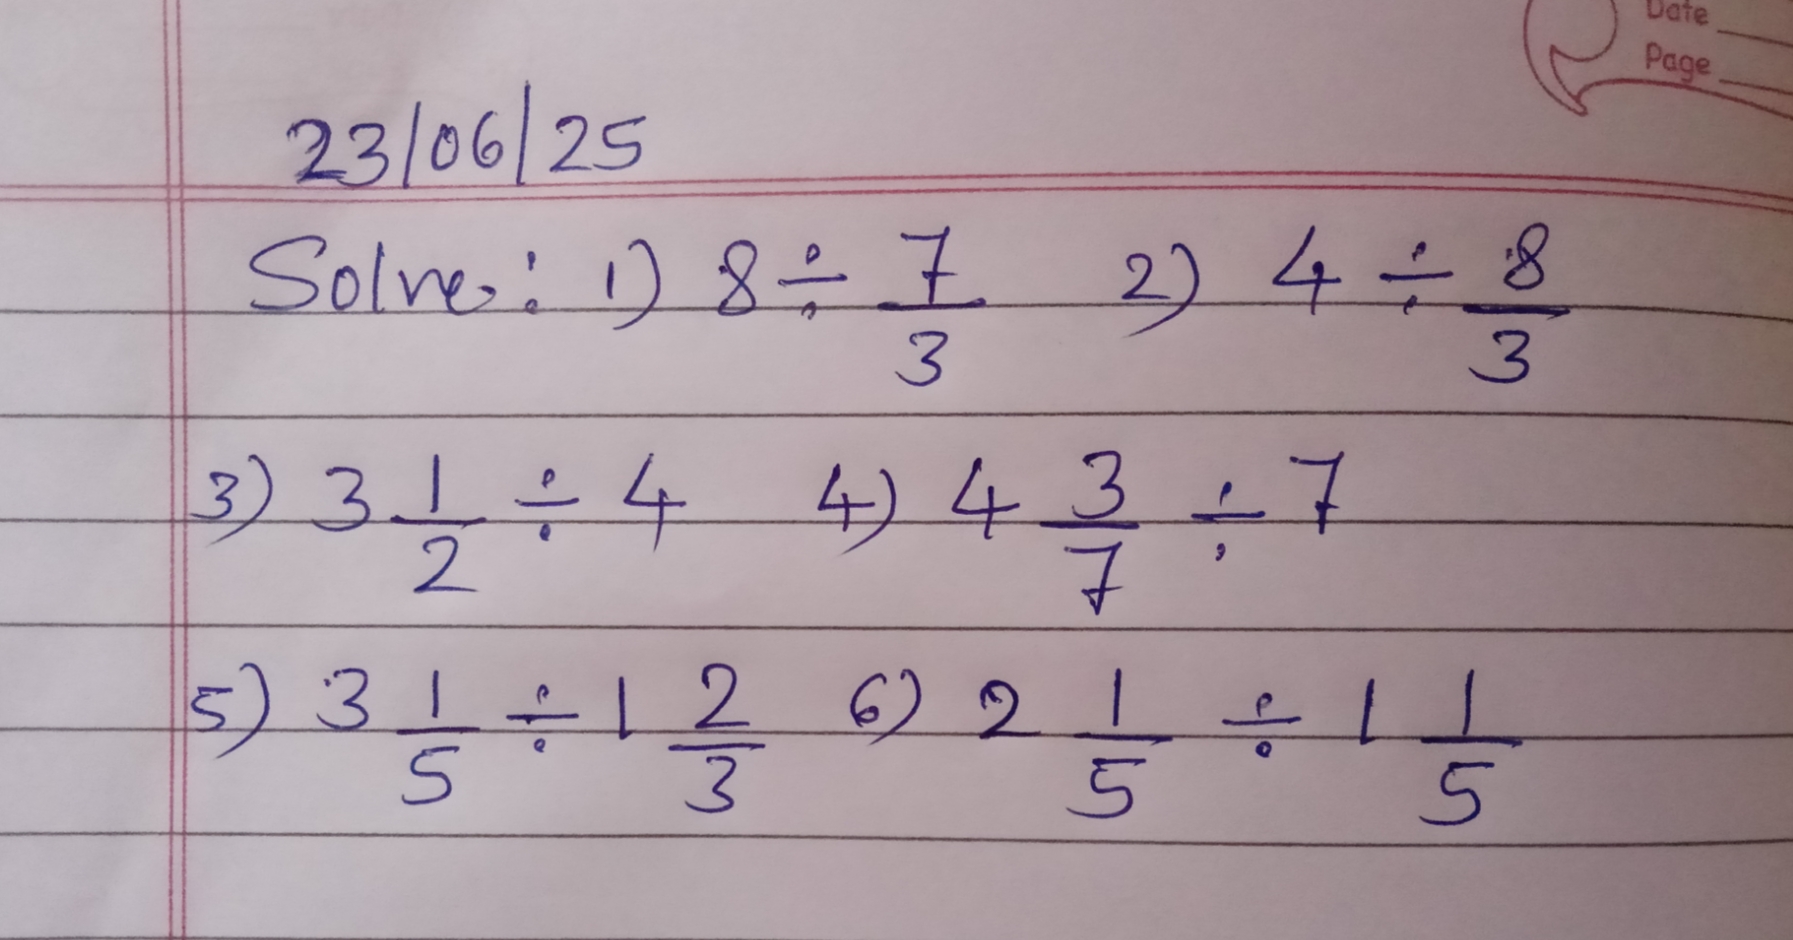 Date
Page
23/06/25
Solve: 1) 8 ÷ 7/3 2) 4 ÷ 8/3
3) 3 1/2 ÷ 4 4) 4 3/7 ÷ 7
5) 3 1/5 ÷ 1 2/3 6) 2 1/5 ÷ 1 1/5